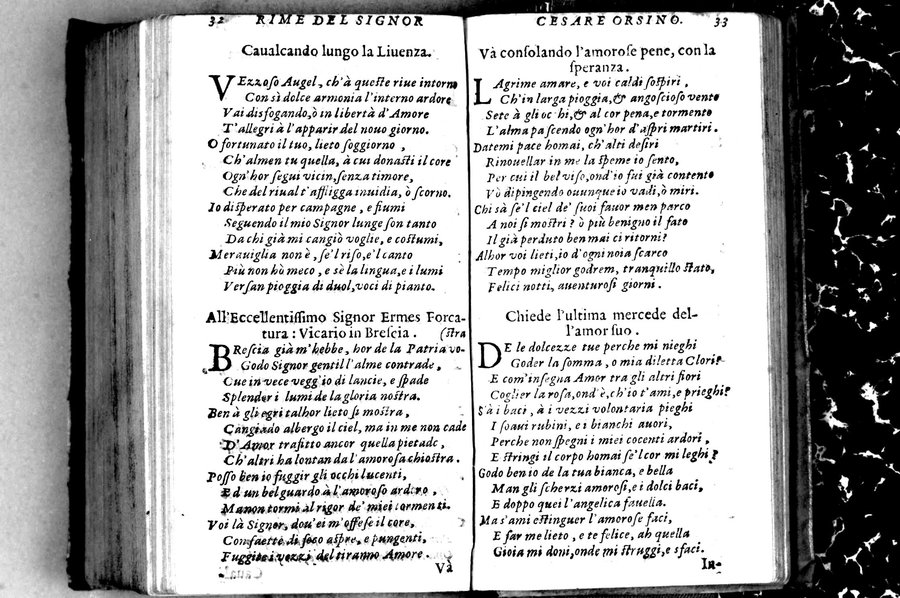 32 RIME DEL SIGNOR
Caualcando lungo la Liuenza.
VEzzoso Augel, ch'à queste riue intorno
Con sì dolce armonia l'interno ardore
Vai disfogando, ò in libertà d'Amore
T'allegri à l'apparir del nouo giorno.
O fortunato il tuo, lieto soggiorno,
Ch'almen tu quella, à cui donasti il core
Ogn'hor segui vicin, senza timore,
Che del riual t'affligga inuidia, ò scorno.
Io disperato per campagne, e fiumi
Seguendo il mio Signor lunge son tanto
Da chi già mi cangiò voglie, e costumi,
Merauiglia non è, se'l riso, e'l canto
Più non hò meco, e sè la lingua, e i lumi
Versan pioggia di duol, voci di pianto.
All'Eccellentissimo Signor Ermes Forca-
tura: Vicario in Brescia. (stra
BRescia già m'hebbe, hor de la Patria vo-
Godo Signor gentil l'alme contrade,
Cue in vece vegg'io di lancie, e spade
Splender i lumi de la gloria nostra.
Ben à gli egri talhor lieto si mostra,
Cangiado albergo il ciel, ma in me non cade
D'Amor trafitto ancor quella pietade,
Ch'altri ha lontan da l'amorosa chiostra.
Posso ben io fuggir gli occhi lucenti,
Ed un bel guardo à l'amoroso ardore,
Ma non tormi al rigor de' miei tormenti.
Voi là Signor, dou'ei m'offese il core,
Con saette di foco aspre, e pungenti,
Fuggite i vezzi del tiranno Amore.
Và
CESARE ORSINO. 33
Và consolando l'amorose pene, con la
speranza.
LAgrime amare, e voi caldi sospiri,
Ch'in larga pioggia, & angoscioso vento
Sete à gli occhi, & al cor pena, e tormento
L'alma pascendo ogn'hor d'aspri martiri.
Datemi pace homai, ch'alti desiri
Rinouellar in me la speme io sento,
Per cui il bel viso, ond'io fui già contento
Vò dipingendo ouunque io vadi, ò miri.
Chi sà se'l ciel de' suoi fauor men parco
A noi si mostri? ò più benigno il fato
Il già perduto ben mai ci ritorni?
Alhor voi lieti, io d'ogni noia scarco
Tempo miglior godrem, tranquillo stato,
Felici notti, auenturosi giorni.
Chiede l'ultima mercede del-
l'amor suo.
DE le dolcezze tue perche mi nieghi
Goder la somma, o mia diletta Clori?
E com'insegna Amor tra gli altri fiori
Coglier la rosa, ond'è, ch'io t'ami, e prieghi?
S'à i baci, à i vezzi volontaria pieghi
I soaui rubini, e i bianchi auori,
Perche non spegni i miei cocenti ardori,
E stringi il corpo homai se'l cor mi leghi?
Godo ben io de la tua bianca, e bella
Man gli scherzi amorosi, e i dolci baci,
E doppo quei l'angelica fauella.
Ma s'ami estinguer l'amorose faci,
E far me lieto, e te felice, ah quella
Gioia mi doni, onde mi struggi, e sfaci.
In-